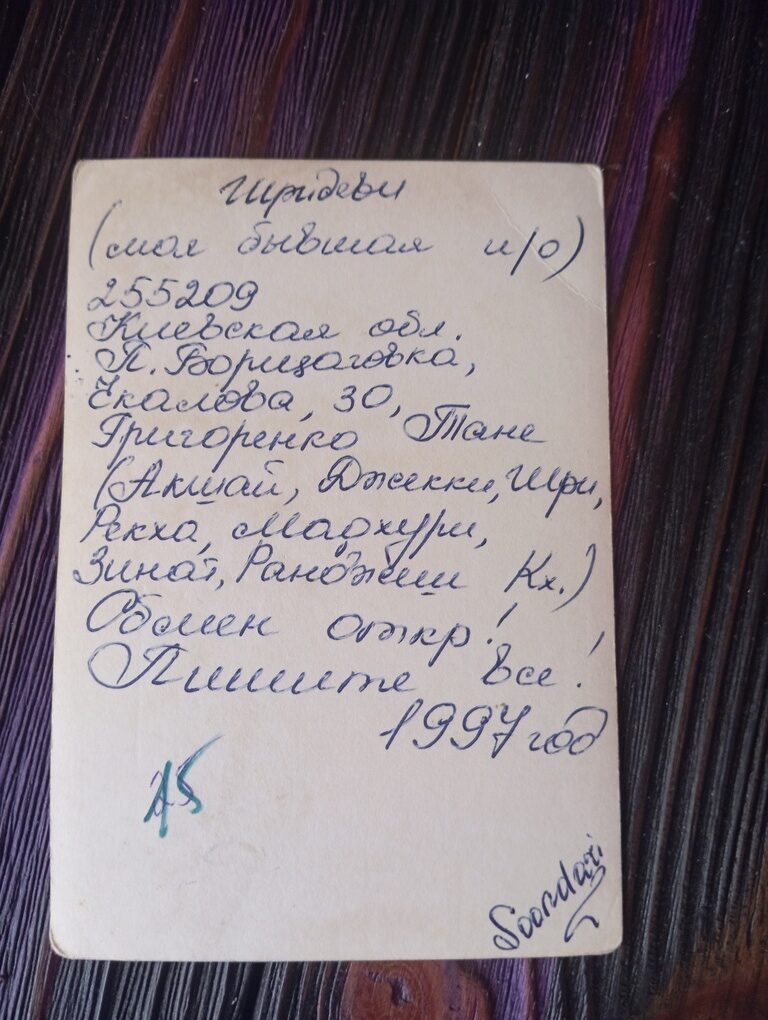 Шридеви
(моя бывшая и/о)
255209
Киевская обл.
П. Борщаговка,
Чкалова, 30,
Григоренко Тане
(Акшай, Джекки, Шри,
Рекха, Мадхури,
Зинат, Ранджит Кх.)
Обмен откр!
Пишите все!
1997 год
15